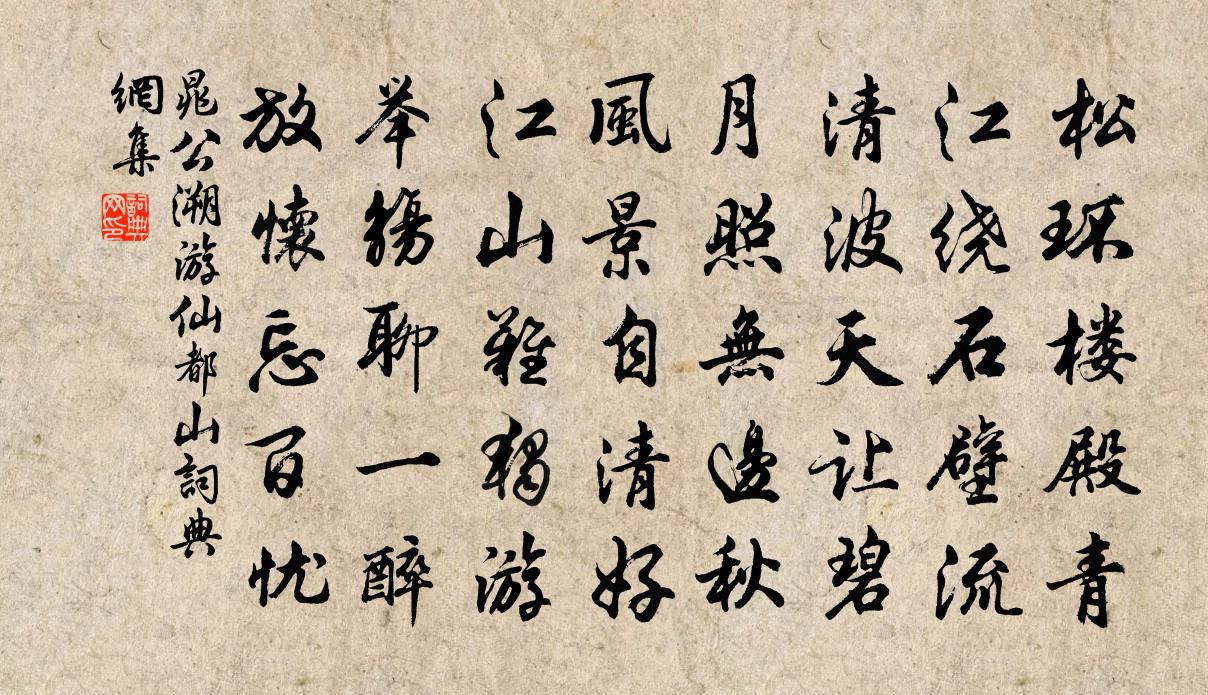 松环楼殿青
江绕石壁流
清波天让碧
月照無邊秋
風景自清好
江山難獨游
举觴聊一醉
放懷忘百忧
晁公溯游仙都山詞典
網集
詞典
网印